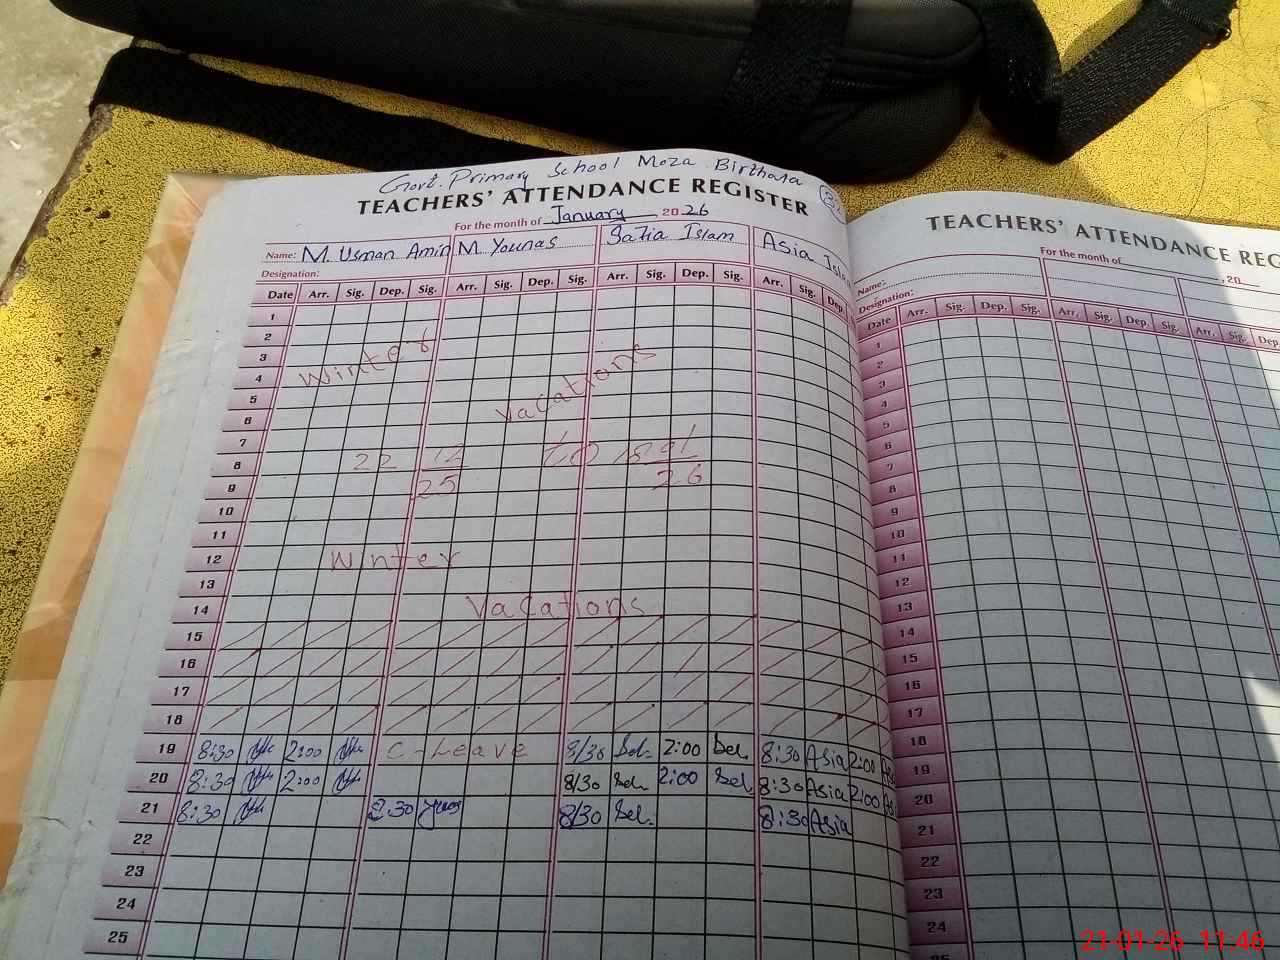 Govt. Primary School Moza Birthara
TEACHERS' ATTENDANCE REGISTER
For the month of January 2026
Name: M. Usman Amin M. Younas Safia Islam Asia
Designation:
Date Arr. Sig. Dep. Sig. Arr. Sig. Dep. Sig. Arr. Sig. Dep. Sig. Arr. Sig. Dep.
1
2
3
Winter
4
vacations
5
6
7
8
22 12/25 to 01/26
9
10
11
12
Winter
13
14
Vacations
15
16
17
18
19 8:30 2:00 C-Leave 8/30 2:00 8:30 Asia 2:00
20 8:30 2:00 8/30 2:00 8:30 Asia 2:00
21 8:30 8:30 8/30 8:30 Asia
22
23
24
25
TEACHERS' ATTENDANCE REG
For the month of , 20
Name:
Designation:
Date Arr. Sig. Dep. Sig. Arr. Sig. Dep. Sig. Arr. Sig. Dep
1
2
3
4
5
6
7
8
9
10
11
12
13
14
15
16
17
18
19
20
21
22
23
24
21-01-26 11:46